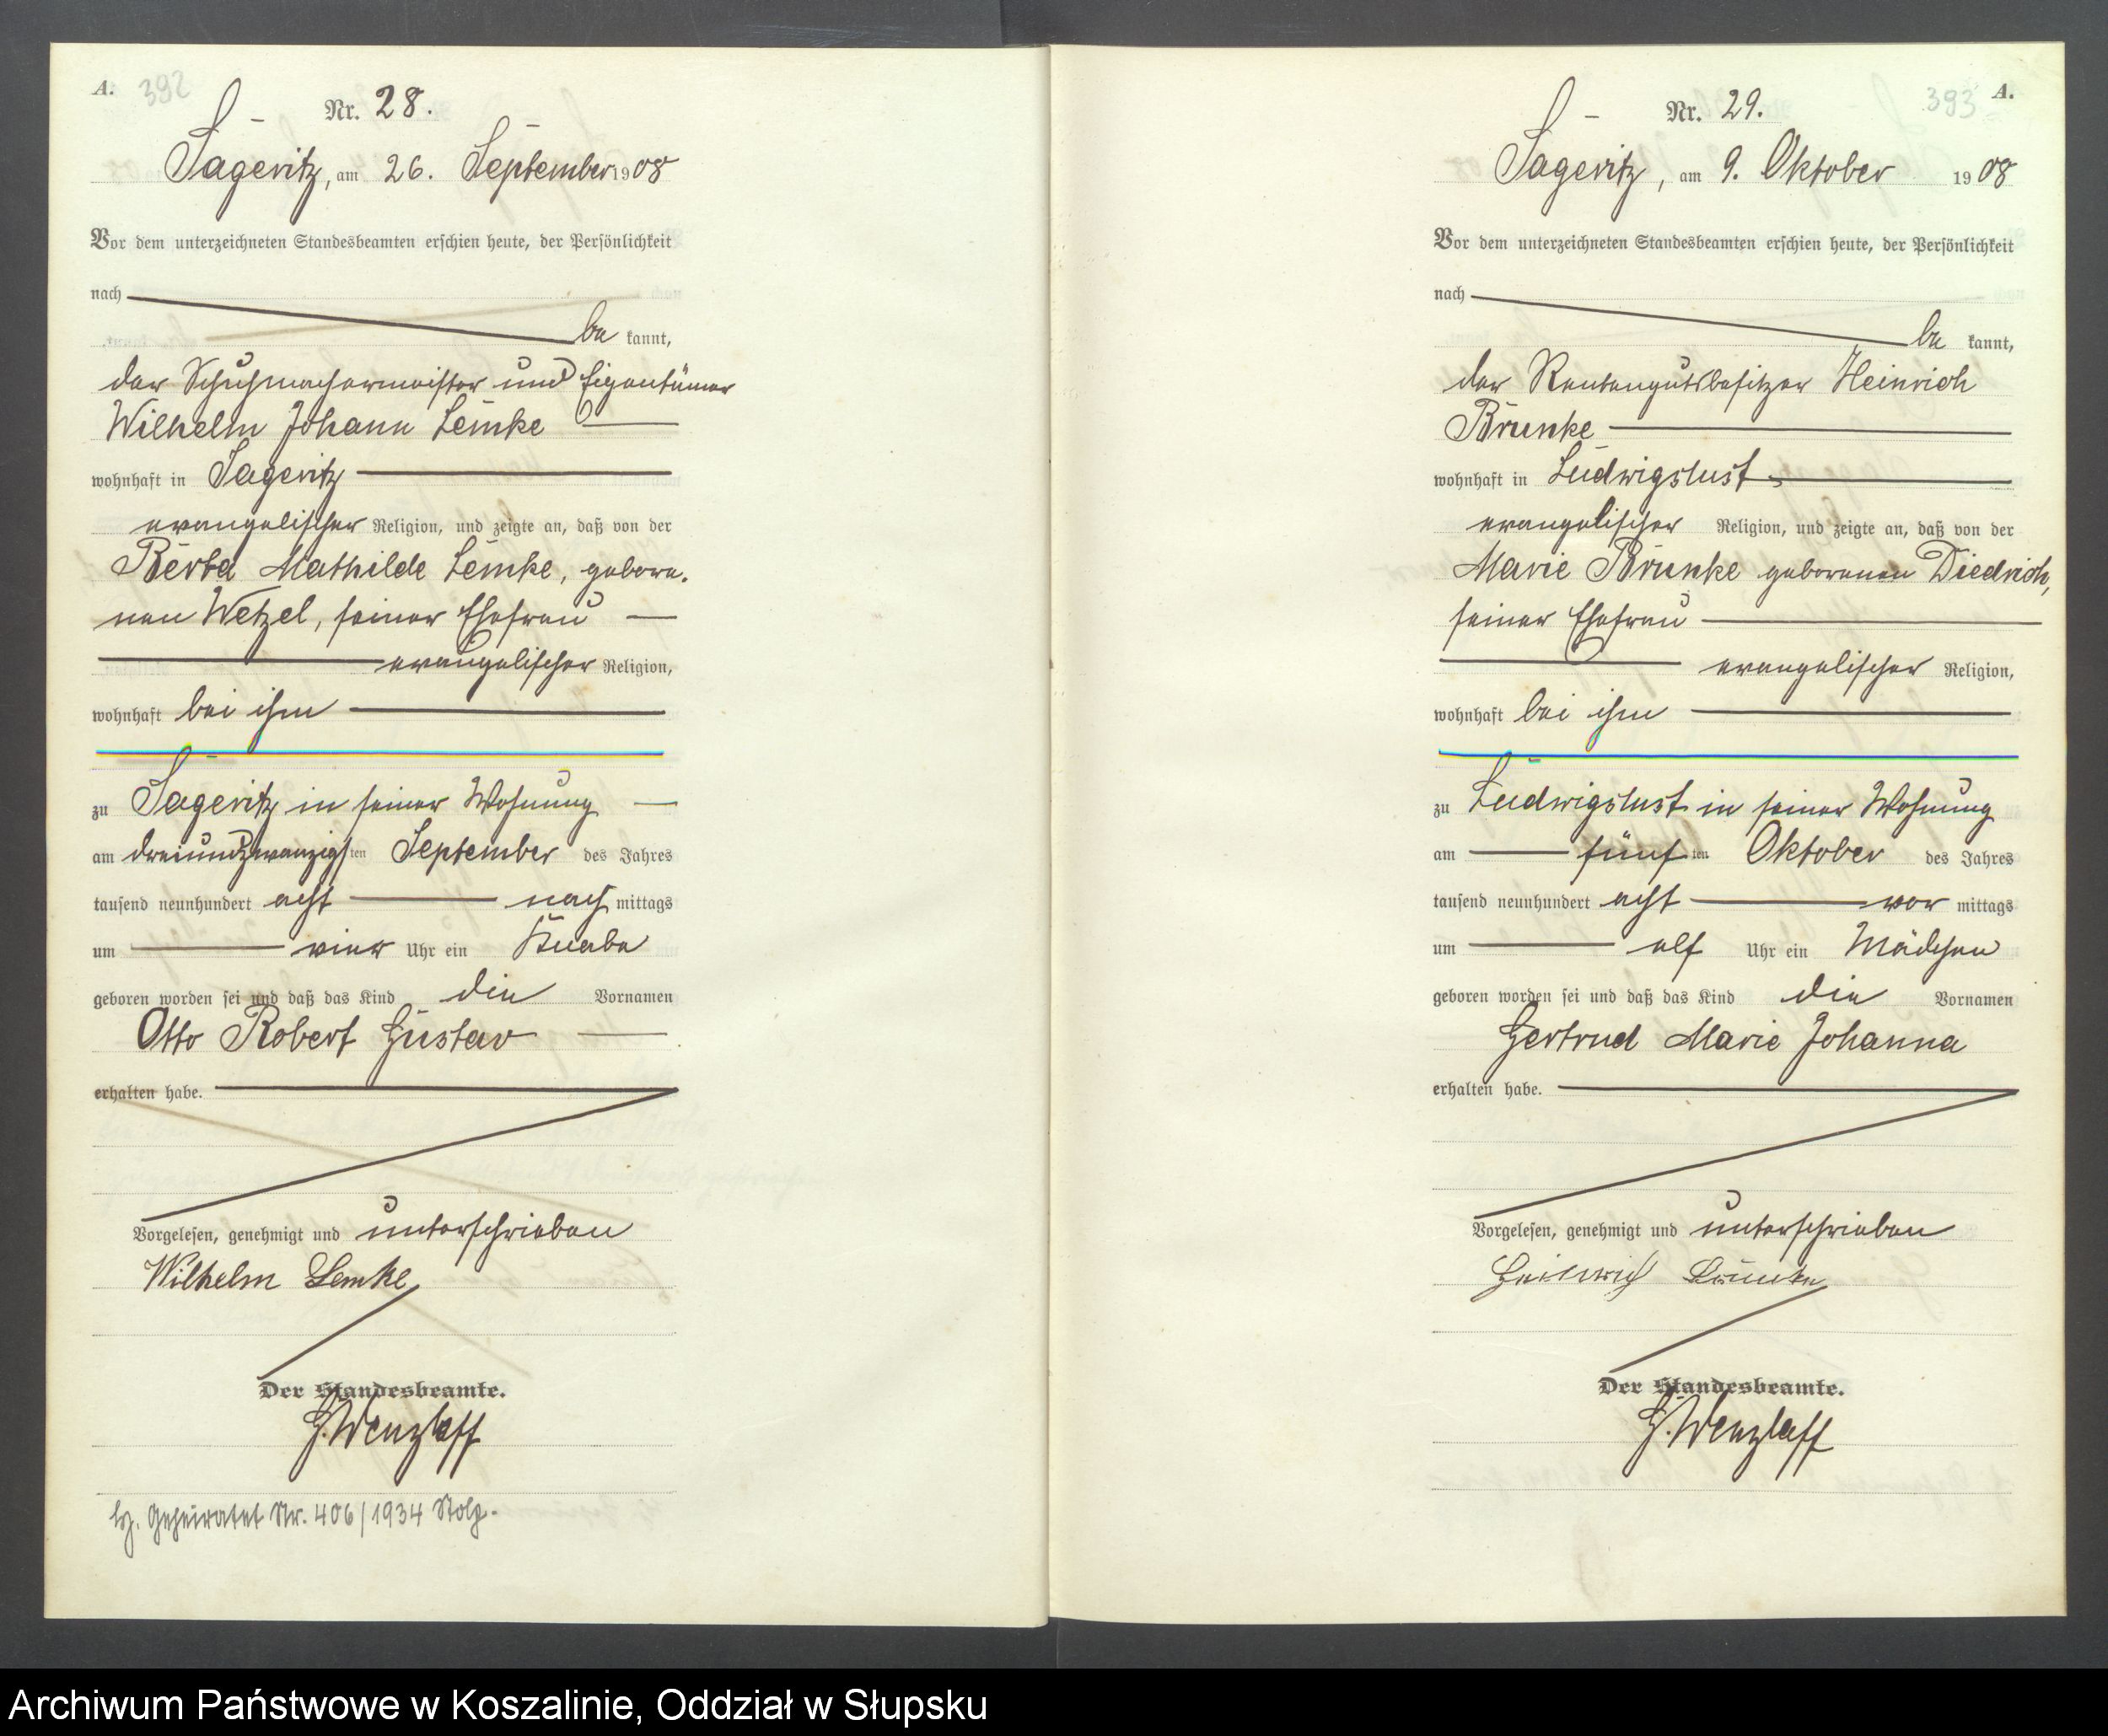 A. 392
Nr. 28.
Sageritz, am 26. September 1908
Vor dem unterzeichneten Standesbeamten erschien heute, der Persönlichkeit
nach
be kannt,
der Schuhmachermeister und Eigentümer
Wilhelm Johann Lemke
wohnhaft in Sageritz
evangelischer Religion, und zeigte an, daß von der
Berta Mathilde Lemke, gebore-
nen Wetzel, seiner Ehefrau
evangelischer Religion,
wohnhaft bei ihm
zu Sageritz in seiner Wohnung
am dreiundzwanzigsten September des Jahres
tausend neunhundert acht nach mittags
um vier Uhr ein Knabe
geboren worden sei und daß das Kind die Vornamen
Otto Robert Gustav
erhalten habe.
Vorgelesen, genehmigt und unterschrieben
Wilhelm Lemke
Der Standesbeamte.
G. Wenzlaff
Geheiratet Nr. 406/1934 Stolp.
393 A.
Nr. 29.
Sageritz, am 9. Oktober 1908
Vor dem unterzeichneten Standesbeamten erschien heute, der Persönlichkeit
nach
be kannt,
der Rentengutsbesitzer Heinrich
Brunke
wohnhaft in Ludwigslust
evangelischer Religion, und zeigte an, daß von der
Marie Brunke geborenen Diedrich,
seiner Ehefrau
evangelischer Religion,
wohnhaft bei ihm
zu Ludwigslust in seiner Wohnung
am fünften Oktober des Jahres
tausend neunhundert acht vor mittags
um elf Uhr ein Mädchen
geboren worden sei und daß das Kind die Vornamen
Gertrud Marie Johanna
erhalten habe.
Vorgelesen, genehmigt und unterschrieben
Heinrich Brunke
Der Standesbeamte.
G. Wenzlaff
Archiwum Państwowe w Koszalinie, Oddział w Słupsku